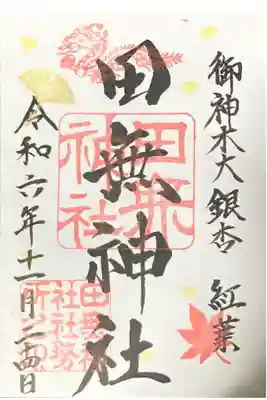 御神木大銀杏 紅葉
田無神社
田無神社
令和六年十一月二十四日
田無神社社務所